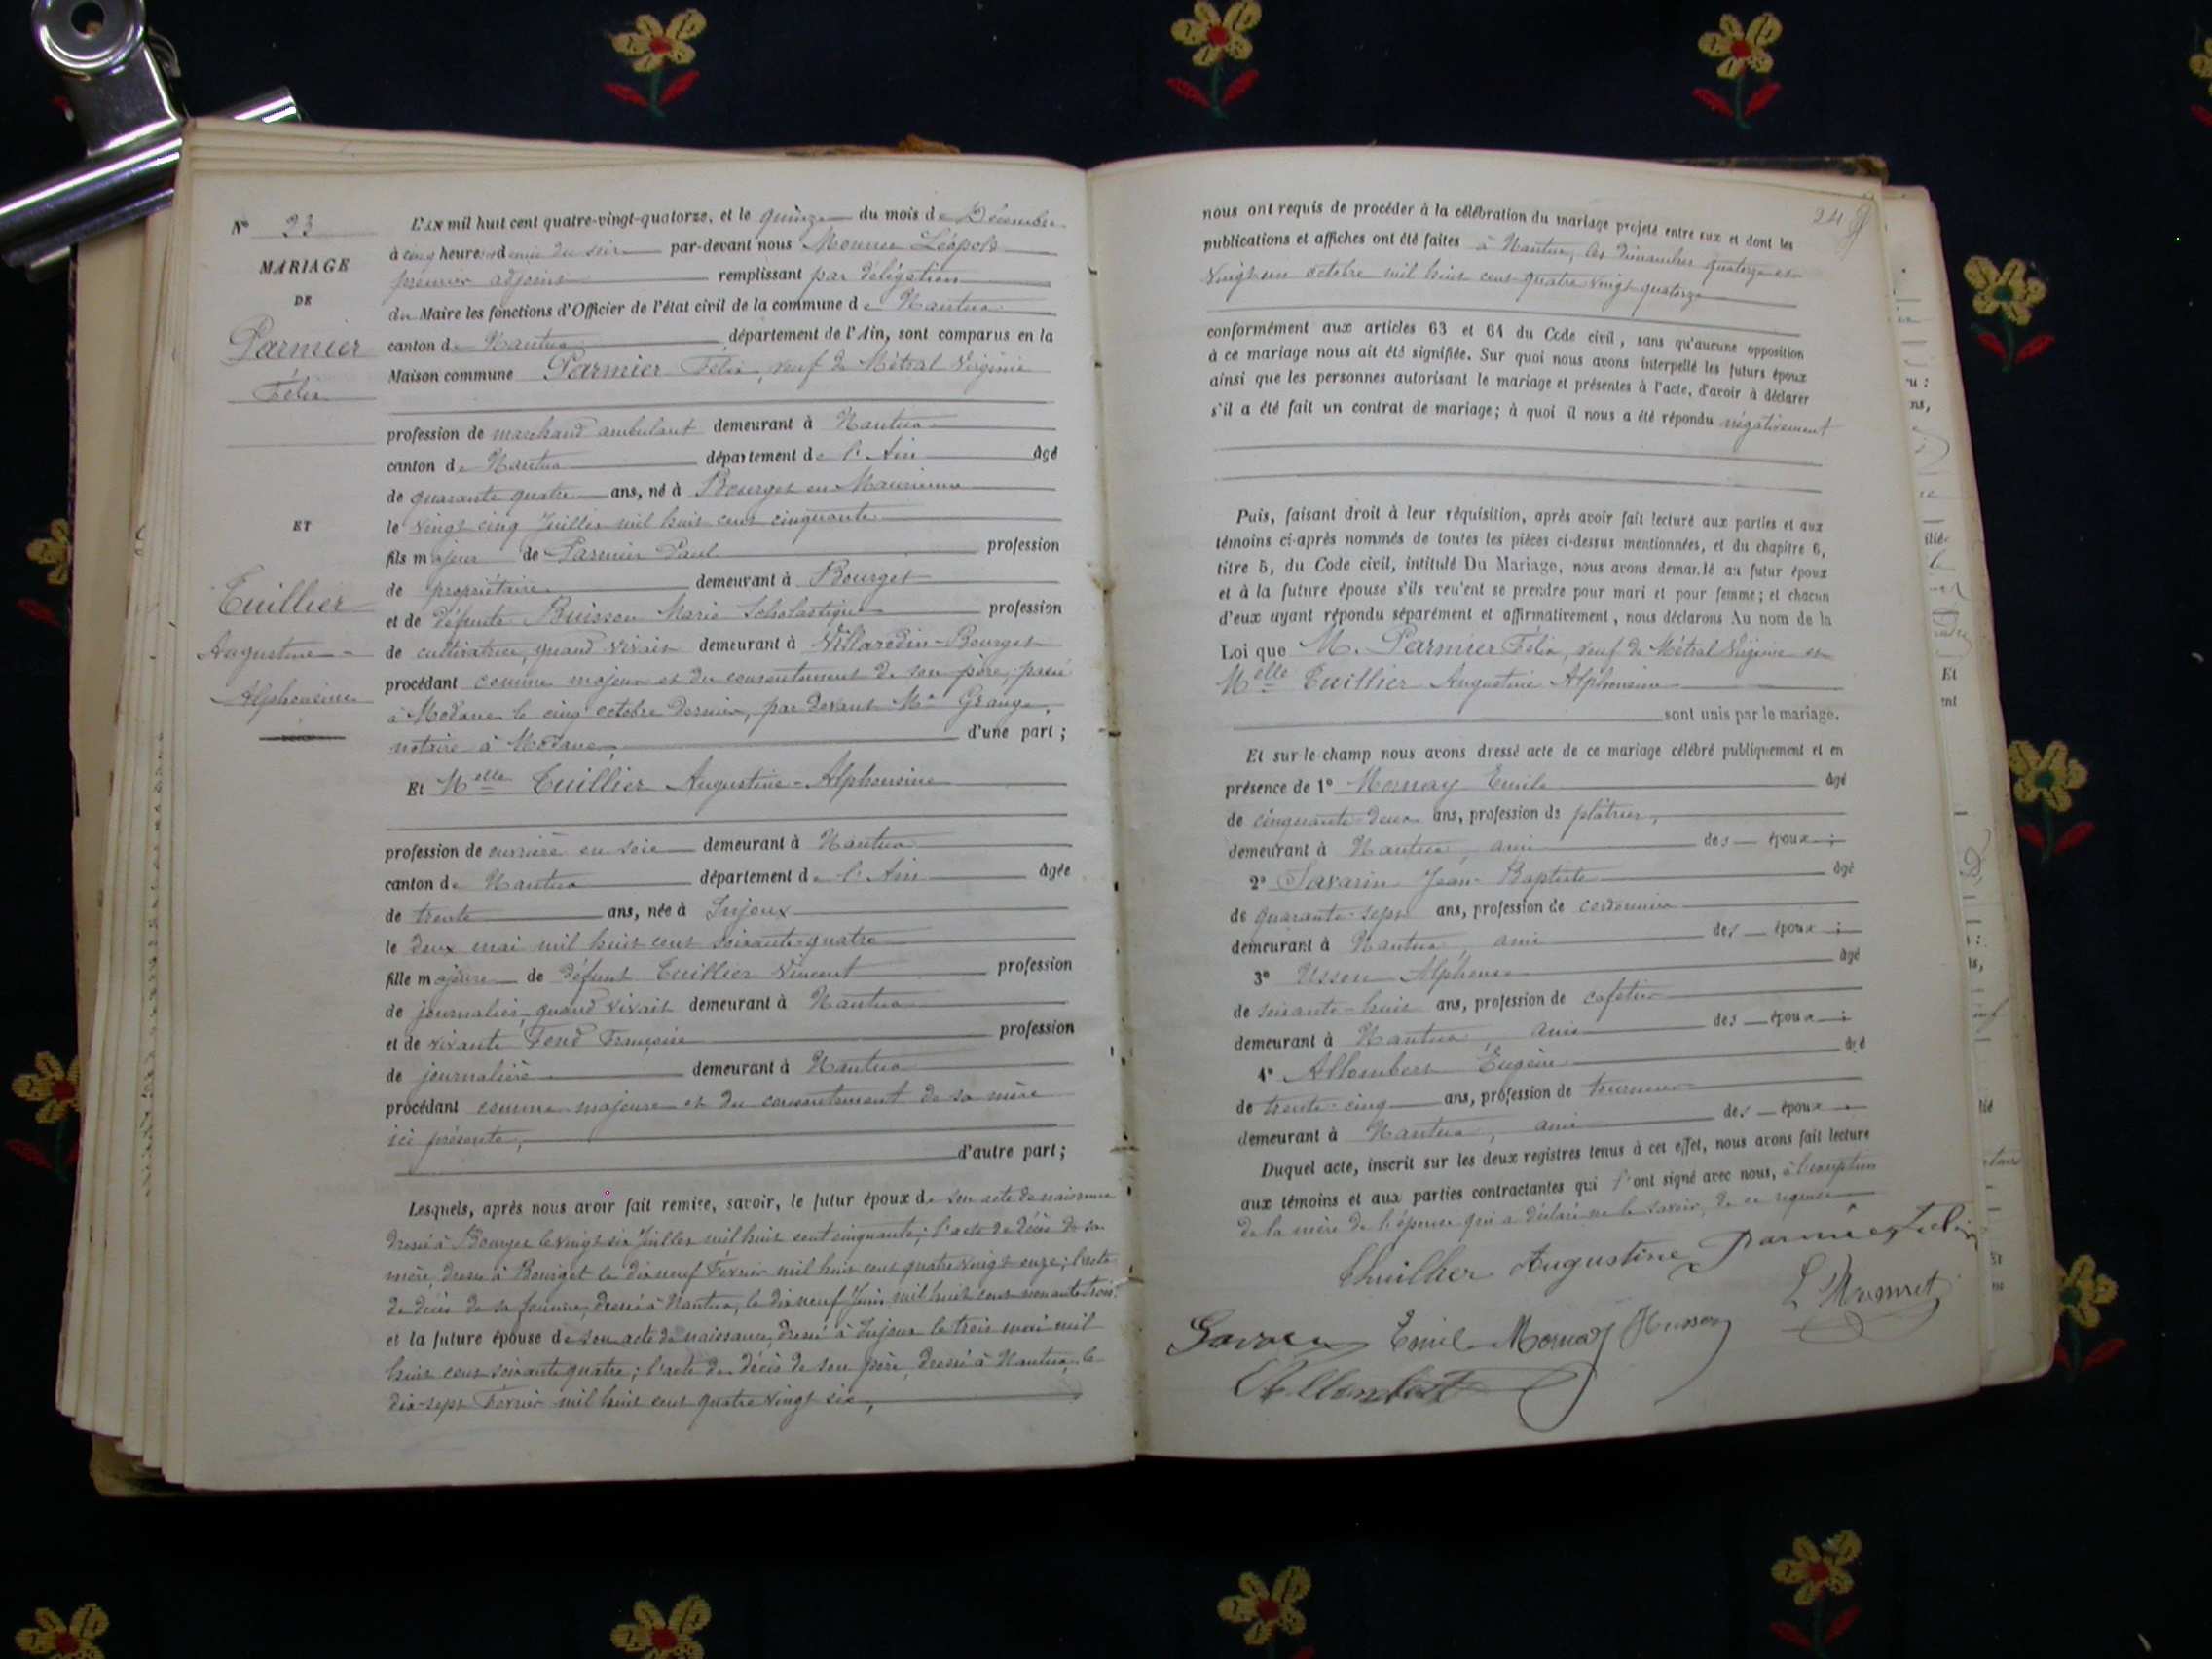 N° 23
MARIAGE
DE
Parmier
Félix
ET
Tuillier
Augustine
Alphonsine
L'AN mil huit cent quatre-vingt-quatorze, et le quinze du mois de Décembre
à cinq heures et demie du soir par-devant nous Léopold
premier adjoint remplissant par délégation
du Maire les fonctions d'Officier de l'état civil de la commune de Nantua
canton de Nantua département de l'Ain, sont comparus en la
Maison commune Parmier Félix, veuf de Métral Virginie
profession de marchand ambulant demeurant à Nantua
canton de Nantua département de l'Ain âgé
de quarante quatre ans, né à Bourget en Maurienne
le vingt cinq Juillet mil huit cent cinquante
fils majeur de Parmier Paul profession
de propriétaire demeurant à Bourget
et de défunte Buisson Marie Scholastique profession
de cultivatrice, quand vivait demeurant à Villarodin-Bourget
procédant comme majeur et du consentement de son père, passé
à Modane le cinq octobre dernier, par devant Me Grange,
notaire à Modane, d'une part ;
Et Melle Tuillier Augustine-Alphonsine
profession de ouvrière en soie demeurant à Nantua
canton de Nantua département de l'Ain âgée
de trente ans, née à Injoux
le deux mai mil huit cent soixante-quatre
fille majeure de défunt Tuillier Vincent profession
de journalier, quand vivait demeurant à Nantua
et de vivante Fend Françoise profession
de journalière demeurant à Nantua
procédant comme majeure et du consentement de sa mère
ici présente, d'autre part ;
Lesquels, après nous avoir fait remise, savoir, le futur époux de son acte de naissance
dressé à Bourget le vingt six Juillet mil huit cent cinquante ; l'acte de décès de sa
mère, dressé à Bourget le dix neuf Février mil huit cent quatre vingt onze ; l'acte
de décès de sa femme, dressé à Nantua, le dix neuf Juin mil huit cent nonante trois ;
et la future épouse de son acte de naissance, dressé à Injoux le trois mai mil
huit cent soixante quatre ; l'acte de décès de son père, dressé à Nantua, le
dix-sept Février mil huit cent quatre vingt six,
24
nous ont requis de procéder à la célébration du mariage projeté entre eux et dont les
publications et affiches ont été faites à Nantua, les dimanches quatorze et
vingt un octobre mil huit cent quatre vingt quatorze
conformément aux articles 63 et 64 du Code civil, sans qu'aucune opposition
à ce mariage nous ait été signifiée. Sur quoi nous avons interpellé les futurs époux
ainsi que les personnes autorisant le mariage et présentes à l'acte, d'avoir à déclarer
s'il a été fait un contrat de mariage ; à quoi il nous a été répondu négativement
Puis, faisant droit à leur réquisition, après avoir fait lecture aux parties et aux
témoins ci-après nommés de toutes les pièces ci-dessus mentionnées, et du chapitre 6,
titre 5, du Code civil, intitulé Du Mariage, nous avons demandé au futur époux
et à la future épouse s'ils veulent se prendre pour mari et pour femme ; et chacun
d'eux ayant répondu séparément et affirmativement, nous déclarons Au nom de la
Loi que M. Parmier Félix, veuf de Métral Virginie et
Melle Tuillier Augustine Alphonsine
sont unis par le mariage.
Et sur-le-champ nous avons dressé acte de ce mariage célébré publiquement et en
présence de 1° Mornay Emile âgé
de cinquante-deux ans, profession de plâtrier,
demeurant à Nantua, ami des époux ;
2° Savarin Jean-Baptiste âgé
de quarante-sept ans, profession de cordonnier
demeurant à Nantua, ami des époux ;
3° Usson Alphonse âgé
de soixante-huit ans, profession de cafetier
demeurant à Nantua, ami des époux ;
4° Allombert Eugène âgé
de trente-cinq ans, profession de tourneur
demeurant à Nantua, ami des époux .
Duquel acte, inscrit sur les deux registres tenus à cet effet, nous avons fait lecture
aux témoins et aux parties contractantes qui l'ont signé avec nous, à l'exception
de la mère de l'épouse qui a déclaré ne le savoir, de ce requise
Thuillier Augustine Parmier Félix
Emile Mornay Husson
Allombert